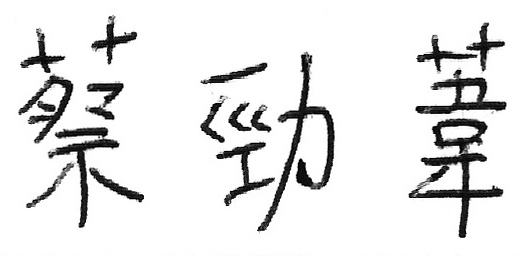 蔡勁葦